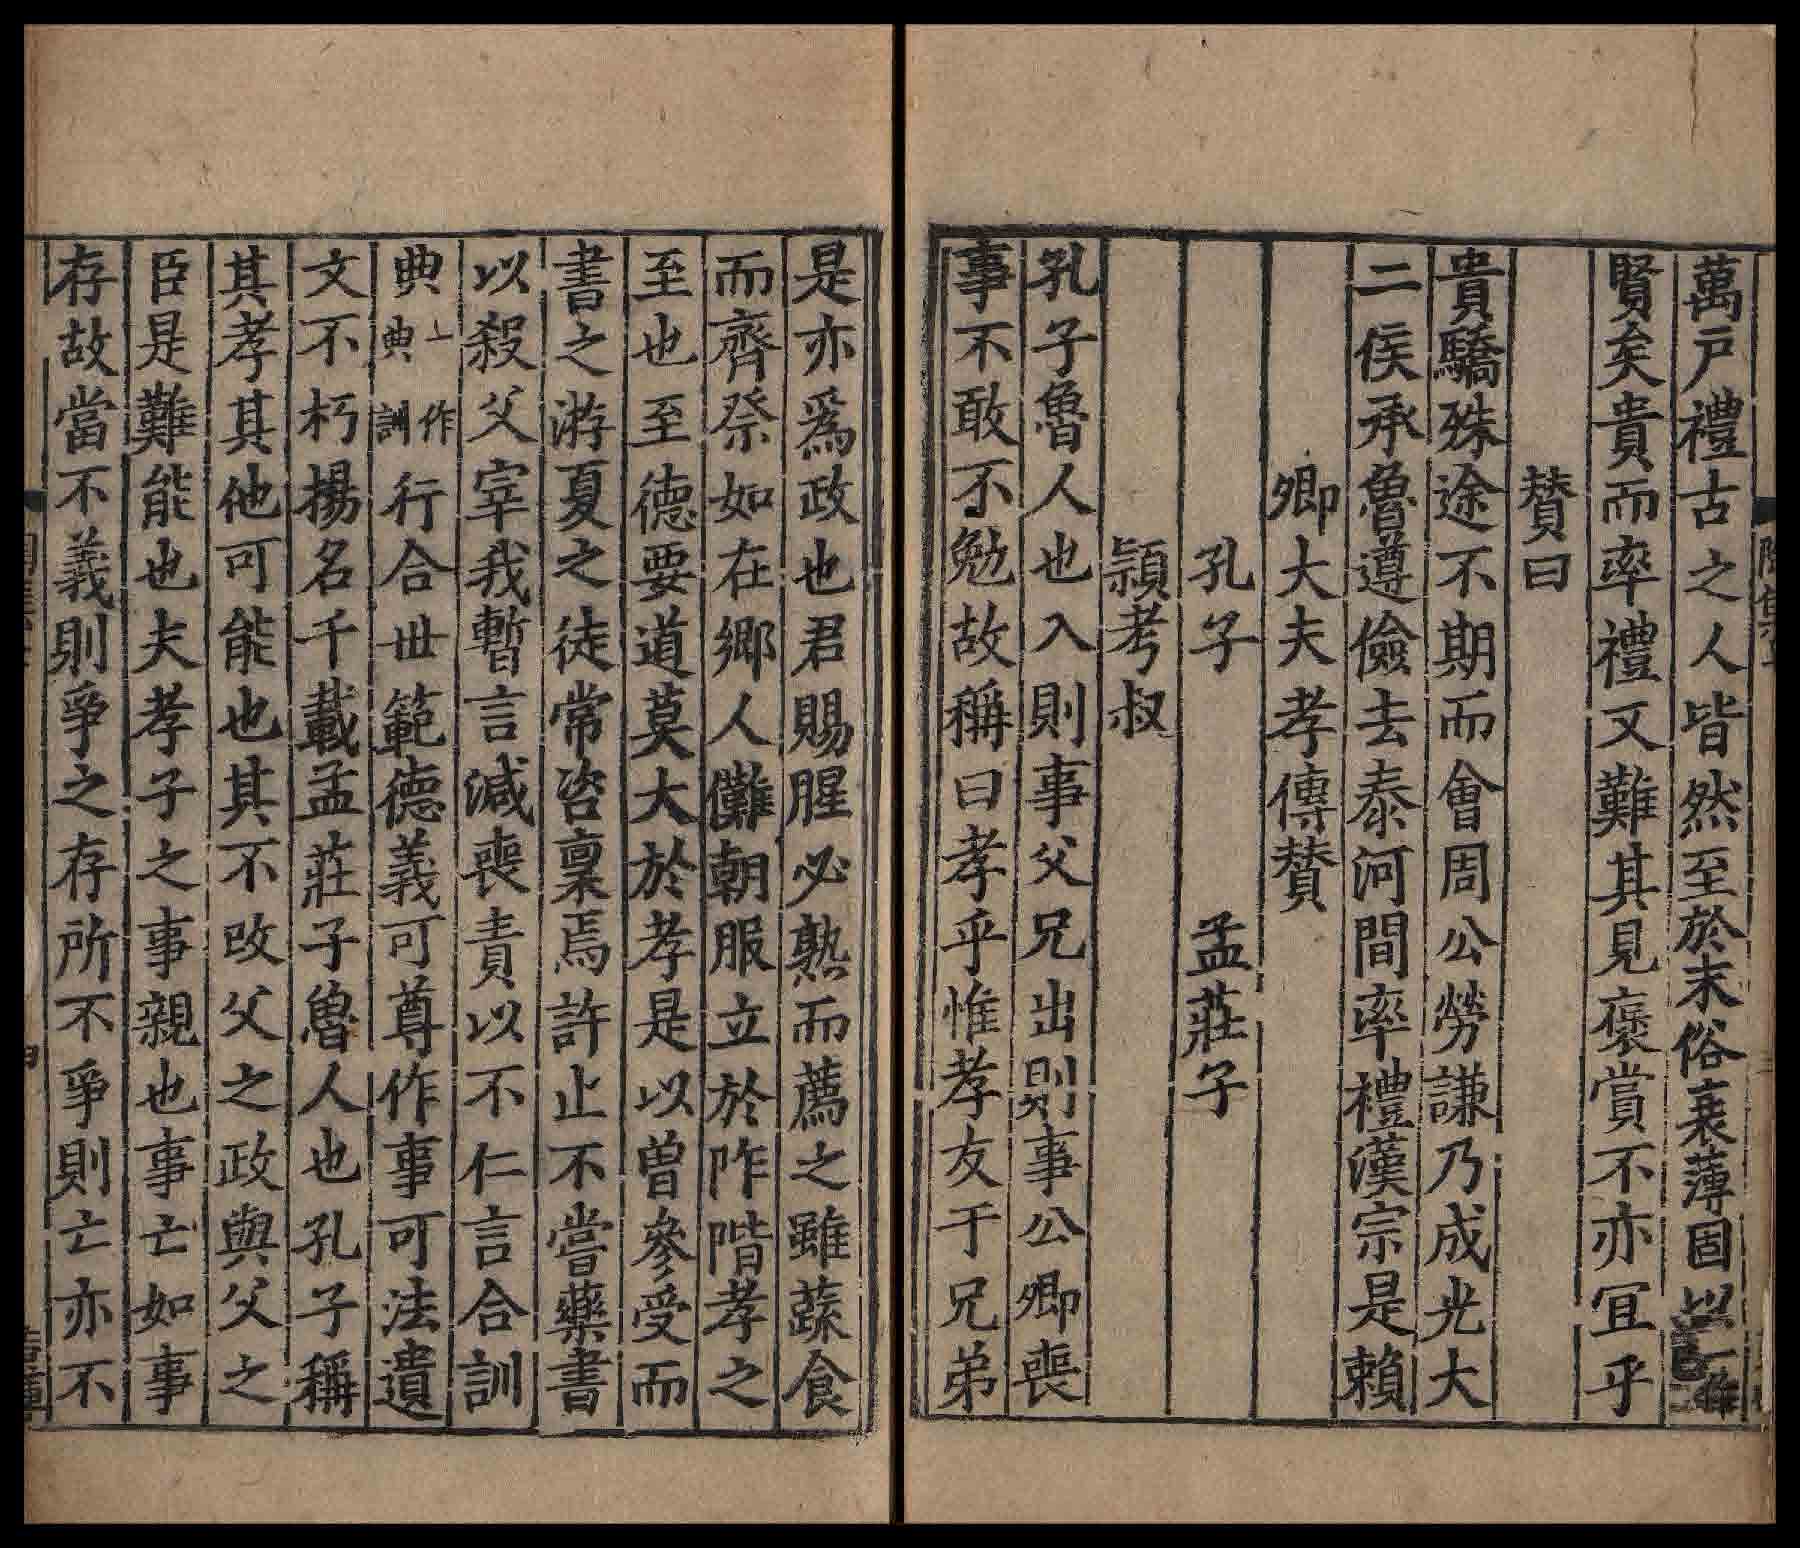 萬戸禮古之人皆然至於末俗衰薄固以一作
賢矣貴而率禮又難其見褒賞不亦冝乎
賛曰
貴驕殊途不期而會周公勞謙乃成光大
二侯承魯遵儉去泰河間率禮漢宗是賴
卿大夫孝傳賛
孔子 孟莊子
頴考叔
孔子魯人也入則事父兄出則事公卿喪
事不敢不勉故稱曰孝乎惟孝友于兄弟
是亦爲政也君賜腥必熟而薦之雖蔬食
而齊祭如在鄉人儺朝服立於阼階孝之
至也至德要道莫大於孝是以曾參受而
書之游夏之徒常咨稟焉許止不嘗藥書
以殺父宰我暫言減喪責以不仁言合訓
典一作典訓行合世範德義可尊作事可法遺
文不朽揚名千載孟莊子魯人也孔子稱
其孝其他可能也其不改父之政與父之
臣是難能也夫孝子之事親也事亡如事
存故當不義則爭之存所不爭則亡亦不